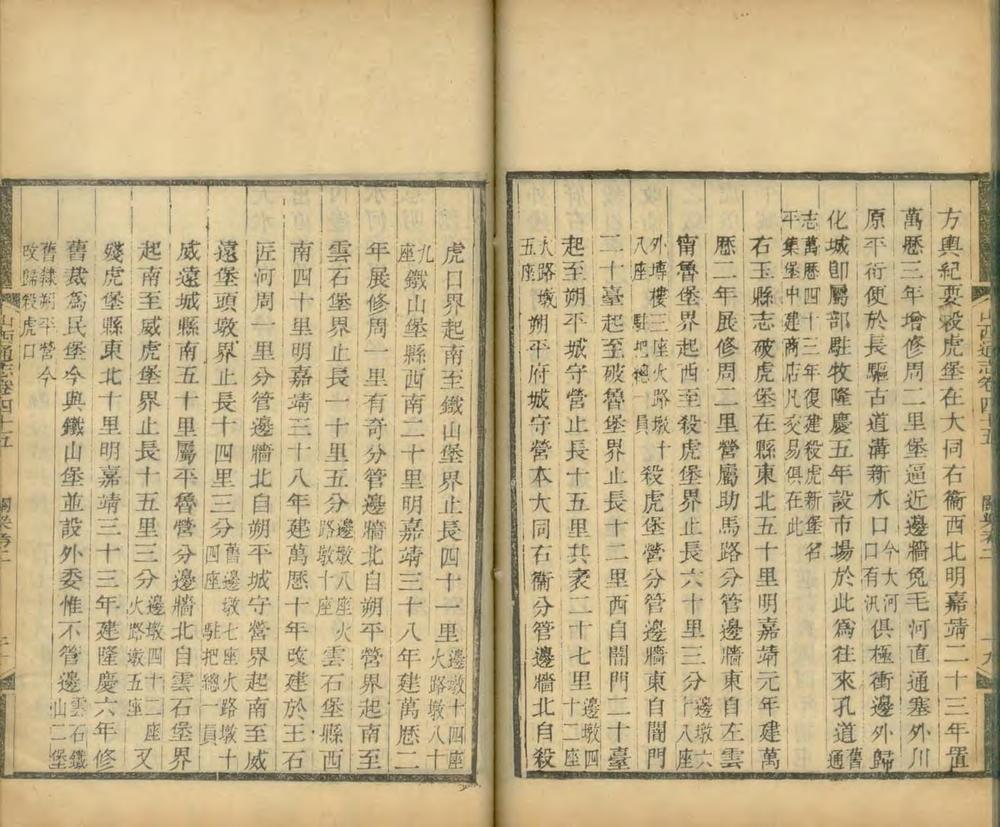 方輿紀要殺虎堡在大同右衞西北明嘉靖二十三年置
萬厯三年增修周二里堡逼近邊牆兔毛河直通塞外川
原平衍便於長驅古道溝新水口今大河口有汛俱極衝邊外歸
化城卽屬部駐牧隆慶五年設市場於此爲往來孔道舊通
志萬厯四十三年復建殺虎新堡名平集堡中建商店凡交易俱在此
右玉縣志破虎堡在縣東北五十里明嘉靖元年建萬
厯二年展修周二里營屬助馬路分管邊牆東自左雲
甯魯堡界起西至殺虎堡界止長六十里三分邊墩六十八座
外塼樓三座火路墩十八座駐把總一員殺虎堡營分管邊牆東自闇門
二十臺起至破魯堡界止長十二里西自闇門二十臺
起至朔平城守營止長十五里共袤二十七里邊墩四十二座
火路墩五座朔平府城守營本大同右衞分管邊牆北自殺
山西通志卷四十五 關梁考二 十九
虎口界起南至鐵山堡界止長四十一里邊墩十四座火路墩八十
九座鐵山堡縣西南二十里明嘉靖三十八年建萬厯二
年展修周一里有奇分管邊牆北自朔平營界起南至
雲石堡界止長一十里五分邊墩八座火路墩十座雲石堡縣西
南四十里明嘉靖三十八年建萬厯十年改建於王石
匠河周一里分管邊牆北自朔平城守營界起南至威
遠堡頭墩界止長十四里三分舊邊墩七座火路墩十四座駐把總一員
威遠城縣南五十里屬平魯營分邊牆北自雲石堡界
起南至威虎堡界止長十五里三分邊墩四十二座火路墩五座又
殘虎堡縣東北十里明嘉靖三十三年建隆慶六年修
舊裁爲民堡今與鐵山堡並設外委惟不管邊雲石鐵山二堡
舊隸朔平營今改歸殺虎口
山西通志卷四十五 關梁考二